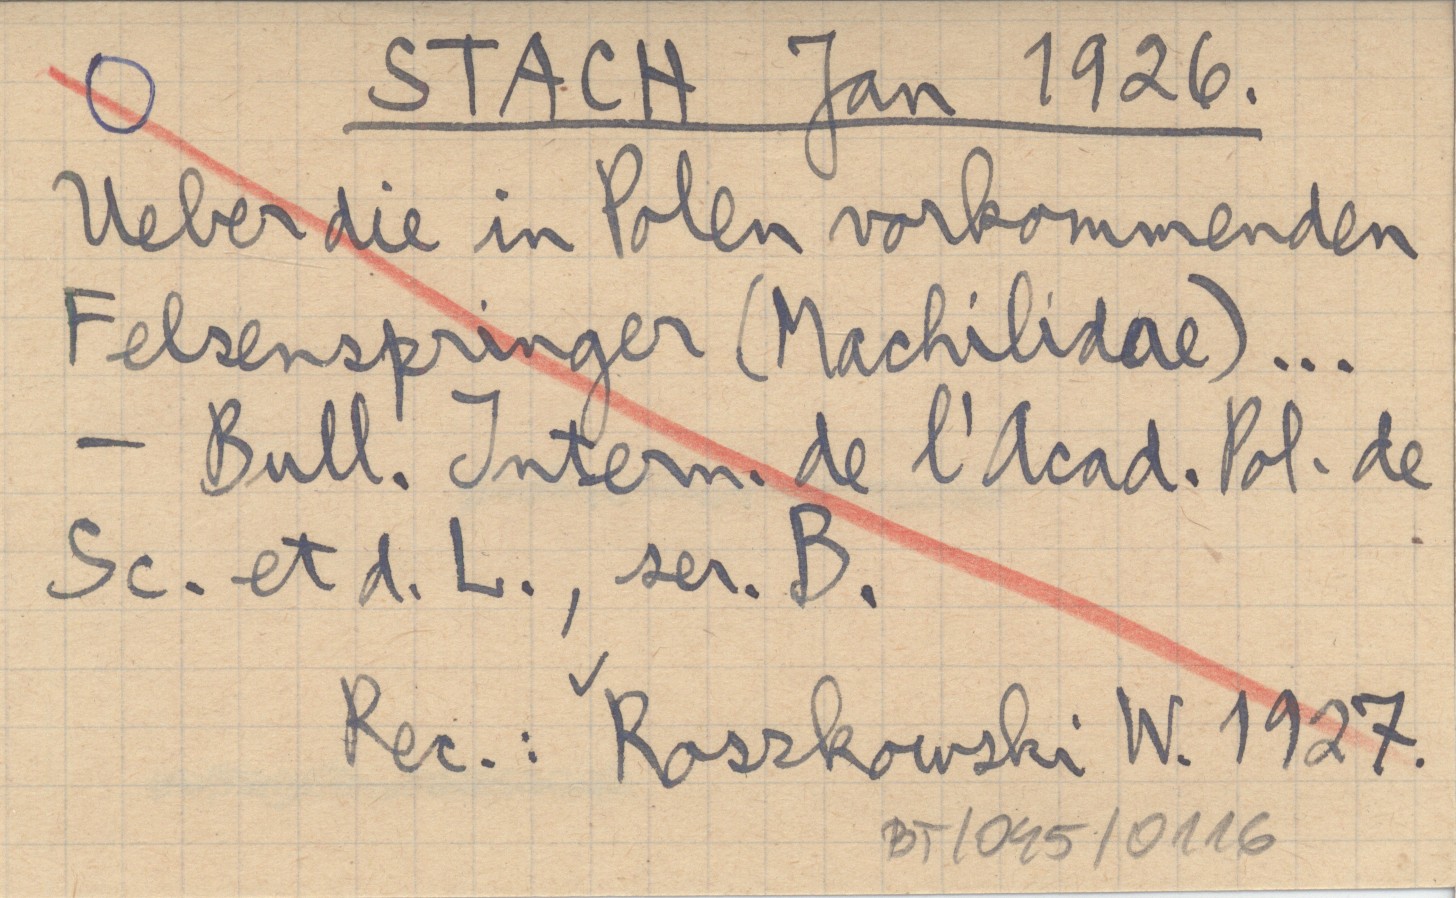 STACH Jan 1926.
Ueber die in Polen vorkommenden
Felsenspringer (Machilidae)...
— Bull. Intern. de l'Acad. Pol. de
Sc. et d. L., ser. B.
Rec.: ✓Roszkowski W. 1927.
BT/045/0116